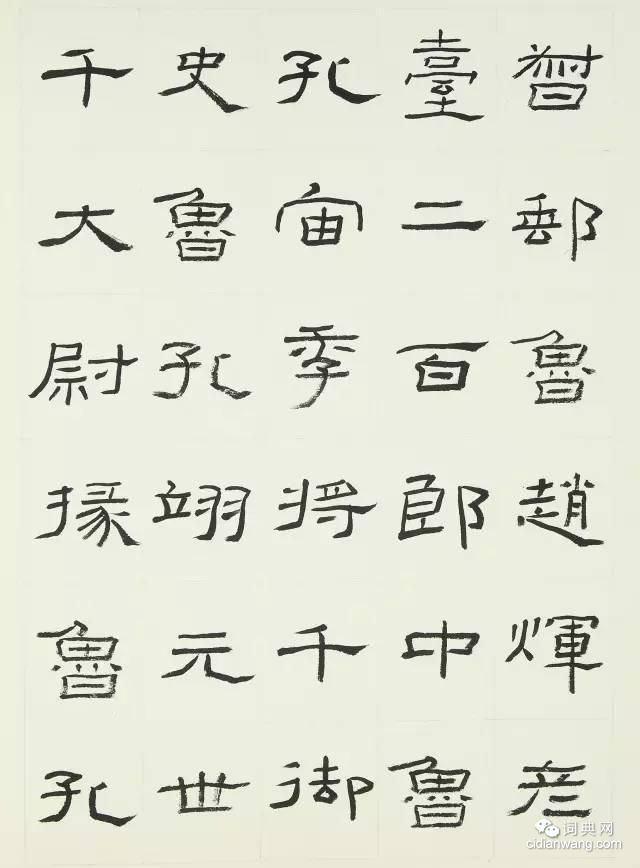 督郵魯趙煇彥
臺二百郎中魯
孔宙季將千御
史魯孔翊元世
千大尉掾魯孔
词典网
cidianwang.com